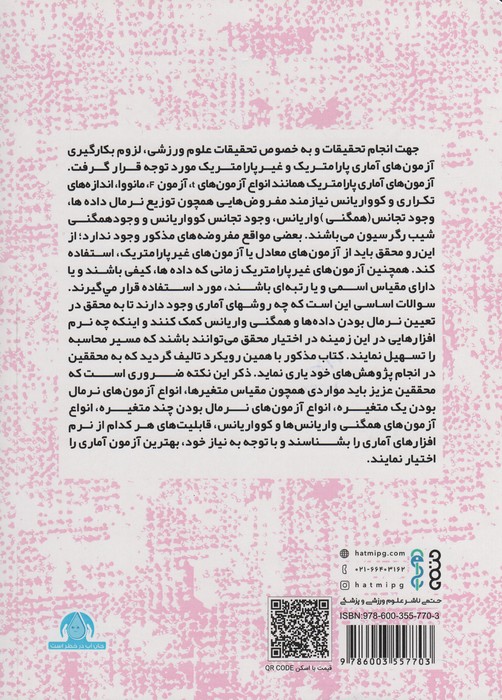 جهت انجام تحقیقات و به خصوص تحقیقات علوم ورزشی، لزوم بکارگیری
آزمون‌های آماری پارامتریک و غیرپارامتریک مورد توجه قرار گرفت.
آزمون‌های آماری پارامتریک همانند انواع آزمون‌های t، آزمون F، مانووا، اندازه‌های
تکراری و کوواریانس نیازمند مفروض‌هایی همچون توزیع نرمال داده ها،
وجود تجانس (همگنی) واریانس، وجود تجانس کوواریانس و وجود همگنی
شیب رگرسیون می‌باشند. بعضی مواقع مفروضه‌های مذکور وجود ندارد؛ از
این‌رو محقق باید از آزمون‌های معادل یا آزمون‌های غیرپارامتریک، استفاده
کند. همچنین آزمون‌های غیرپارامتریک زمانی که داده ها، کیفی باشند و یا
دارای مقیاس اسمی و یا رتبه‌ای باشند، مورد استفاده قرار می‌گیرند.
سوالات اساسی این است که چه روشهای آماری وجود دارند تا به محقق در
تعیین نرمال بودن داده‌ها و همگنی واریانس کمک کنند و اینکه چه نرم
افزارهایی در این زمینه در اختیار محقق می‌توانند باشند که مسیر محاسبه
را تسهیل نمایند. کتاب مذکور با همین رویکرد تالیف گردید که به محققین
در انجام پژوهش‌های خود یاری نماید. ذکر این نکته ضروری است که
محققین عزیز باید مواردی همچون مقیاس متغیرها، انواع آزمون‌های نرمال
بودن یک متغیره، انواع آزمون‌های نرمال بودن چند متغیره، انواع
آزمون‌های همگنی واریانس‌ها و کوواریانس، قابلیت‌های هر کدام از نرم
افزارهای آماری را بشناسند و با توجه به نیاز خود، بهترین آزمون آماری را
اختیار نمایند.
hatmipg.com
۰۲۱-۶۶۴۰۳۱۶۲
hatmipg
حتمی ناشر علوم ورزشی و پزشکی
ISBN:978-600-355-770-3
9 786003 557703
قیمت با اسکن QR CODE
جان آب در خطر است